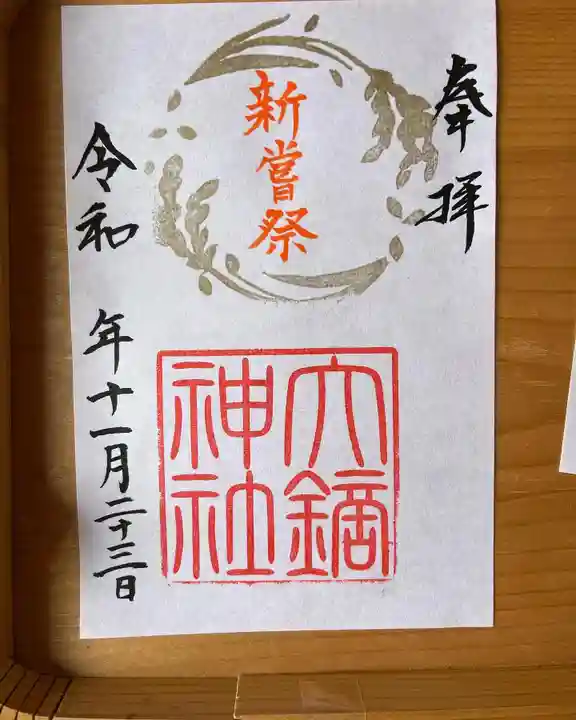 奉拝
新嘗祭
大鏑神社
令和 年十一月二十三日